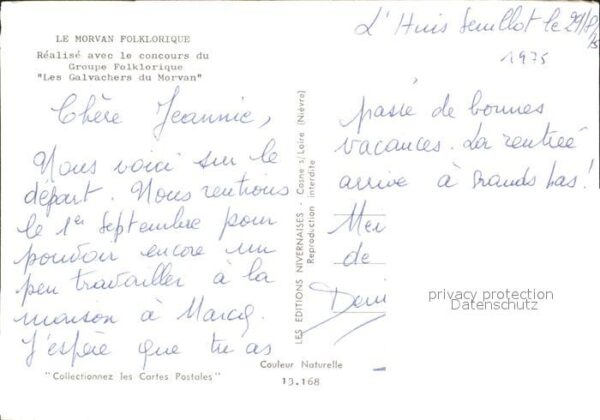 LE MORVAN FOLKLORIQUE
Réalisé avec le concours du
Groupe Folklorique
"Les Galvachers du Morvan"
L'Huis Seuillot le 29/8/75
1975
Chère Jeannie,
Nous voici sur le
départ. Nous rentrons
le 1er septembre pour
pouvoir encore un
peu travailler à la
maison à Marcq.
J'espère que tu as
passé de bonnes
vacances. La rentrée
arrive à grands pas!
de
privacy protection
Datenschutz
LES EDITIONS NIVERNAISES - Cosne s/Loire (Nièvre)
Reproduction interdite
Couleur Naturelle
"Collectionnez les Cartes Postales"
13.168